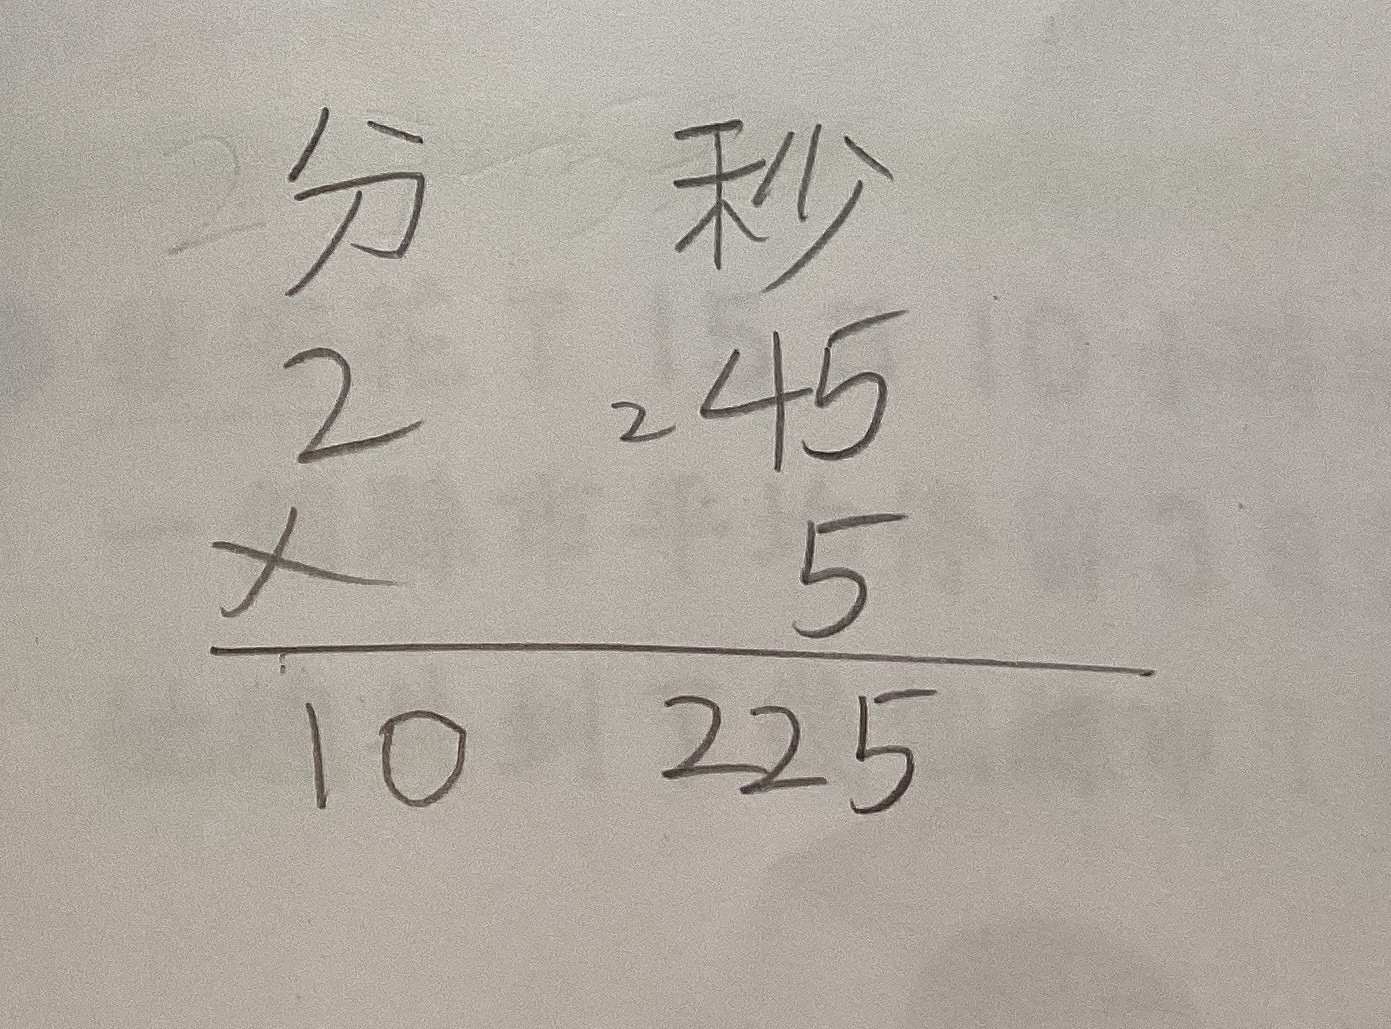 分 秒
2 2 45
× 5
10 225